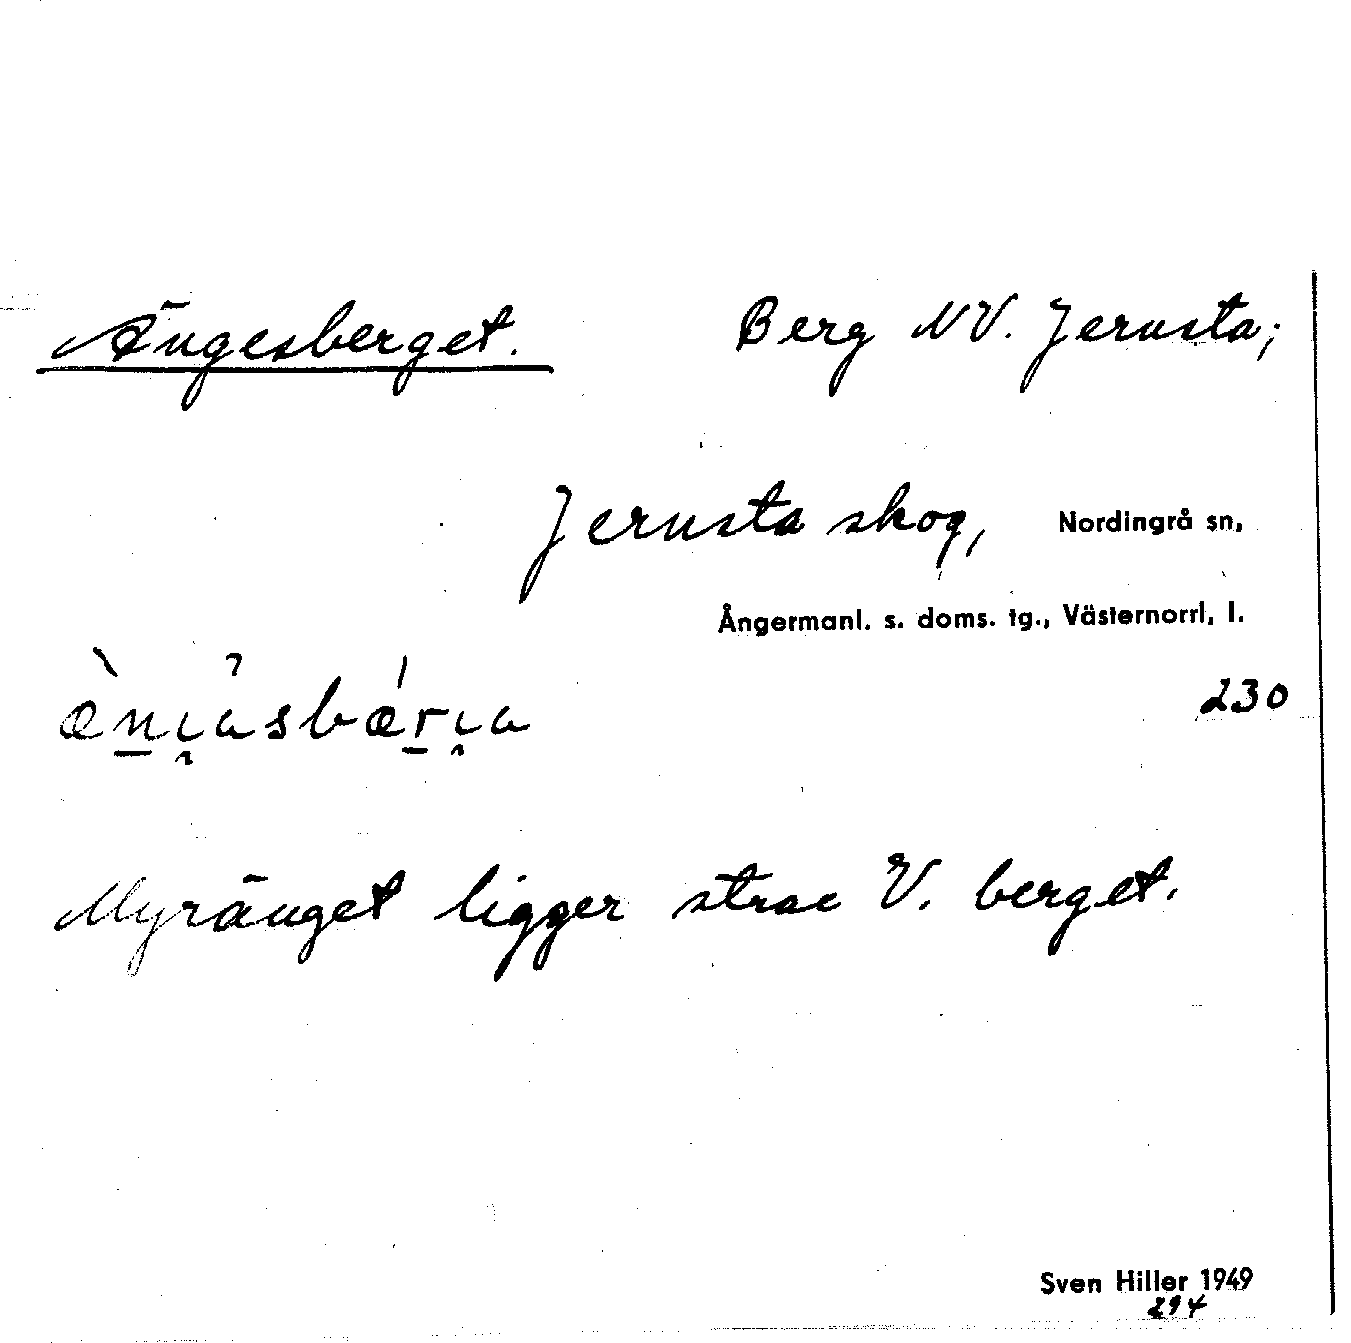 Ängesberget. Berg NV. Jerusta;
Jerusta skog, Nordingrå sn,
Ångermanl. s. doms. tg., Västernorrl. l.
230
Myränget ligger strax V. berget.
Sven Hiller 1949
294